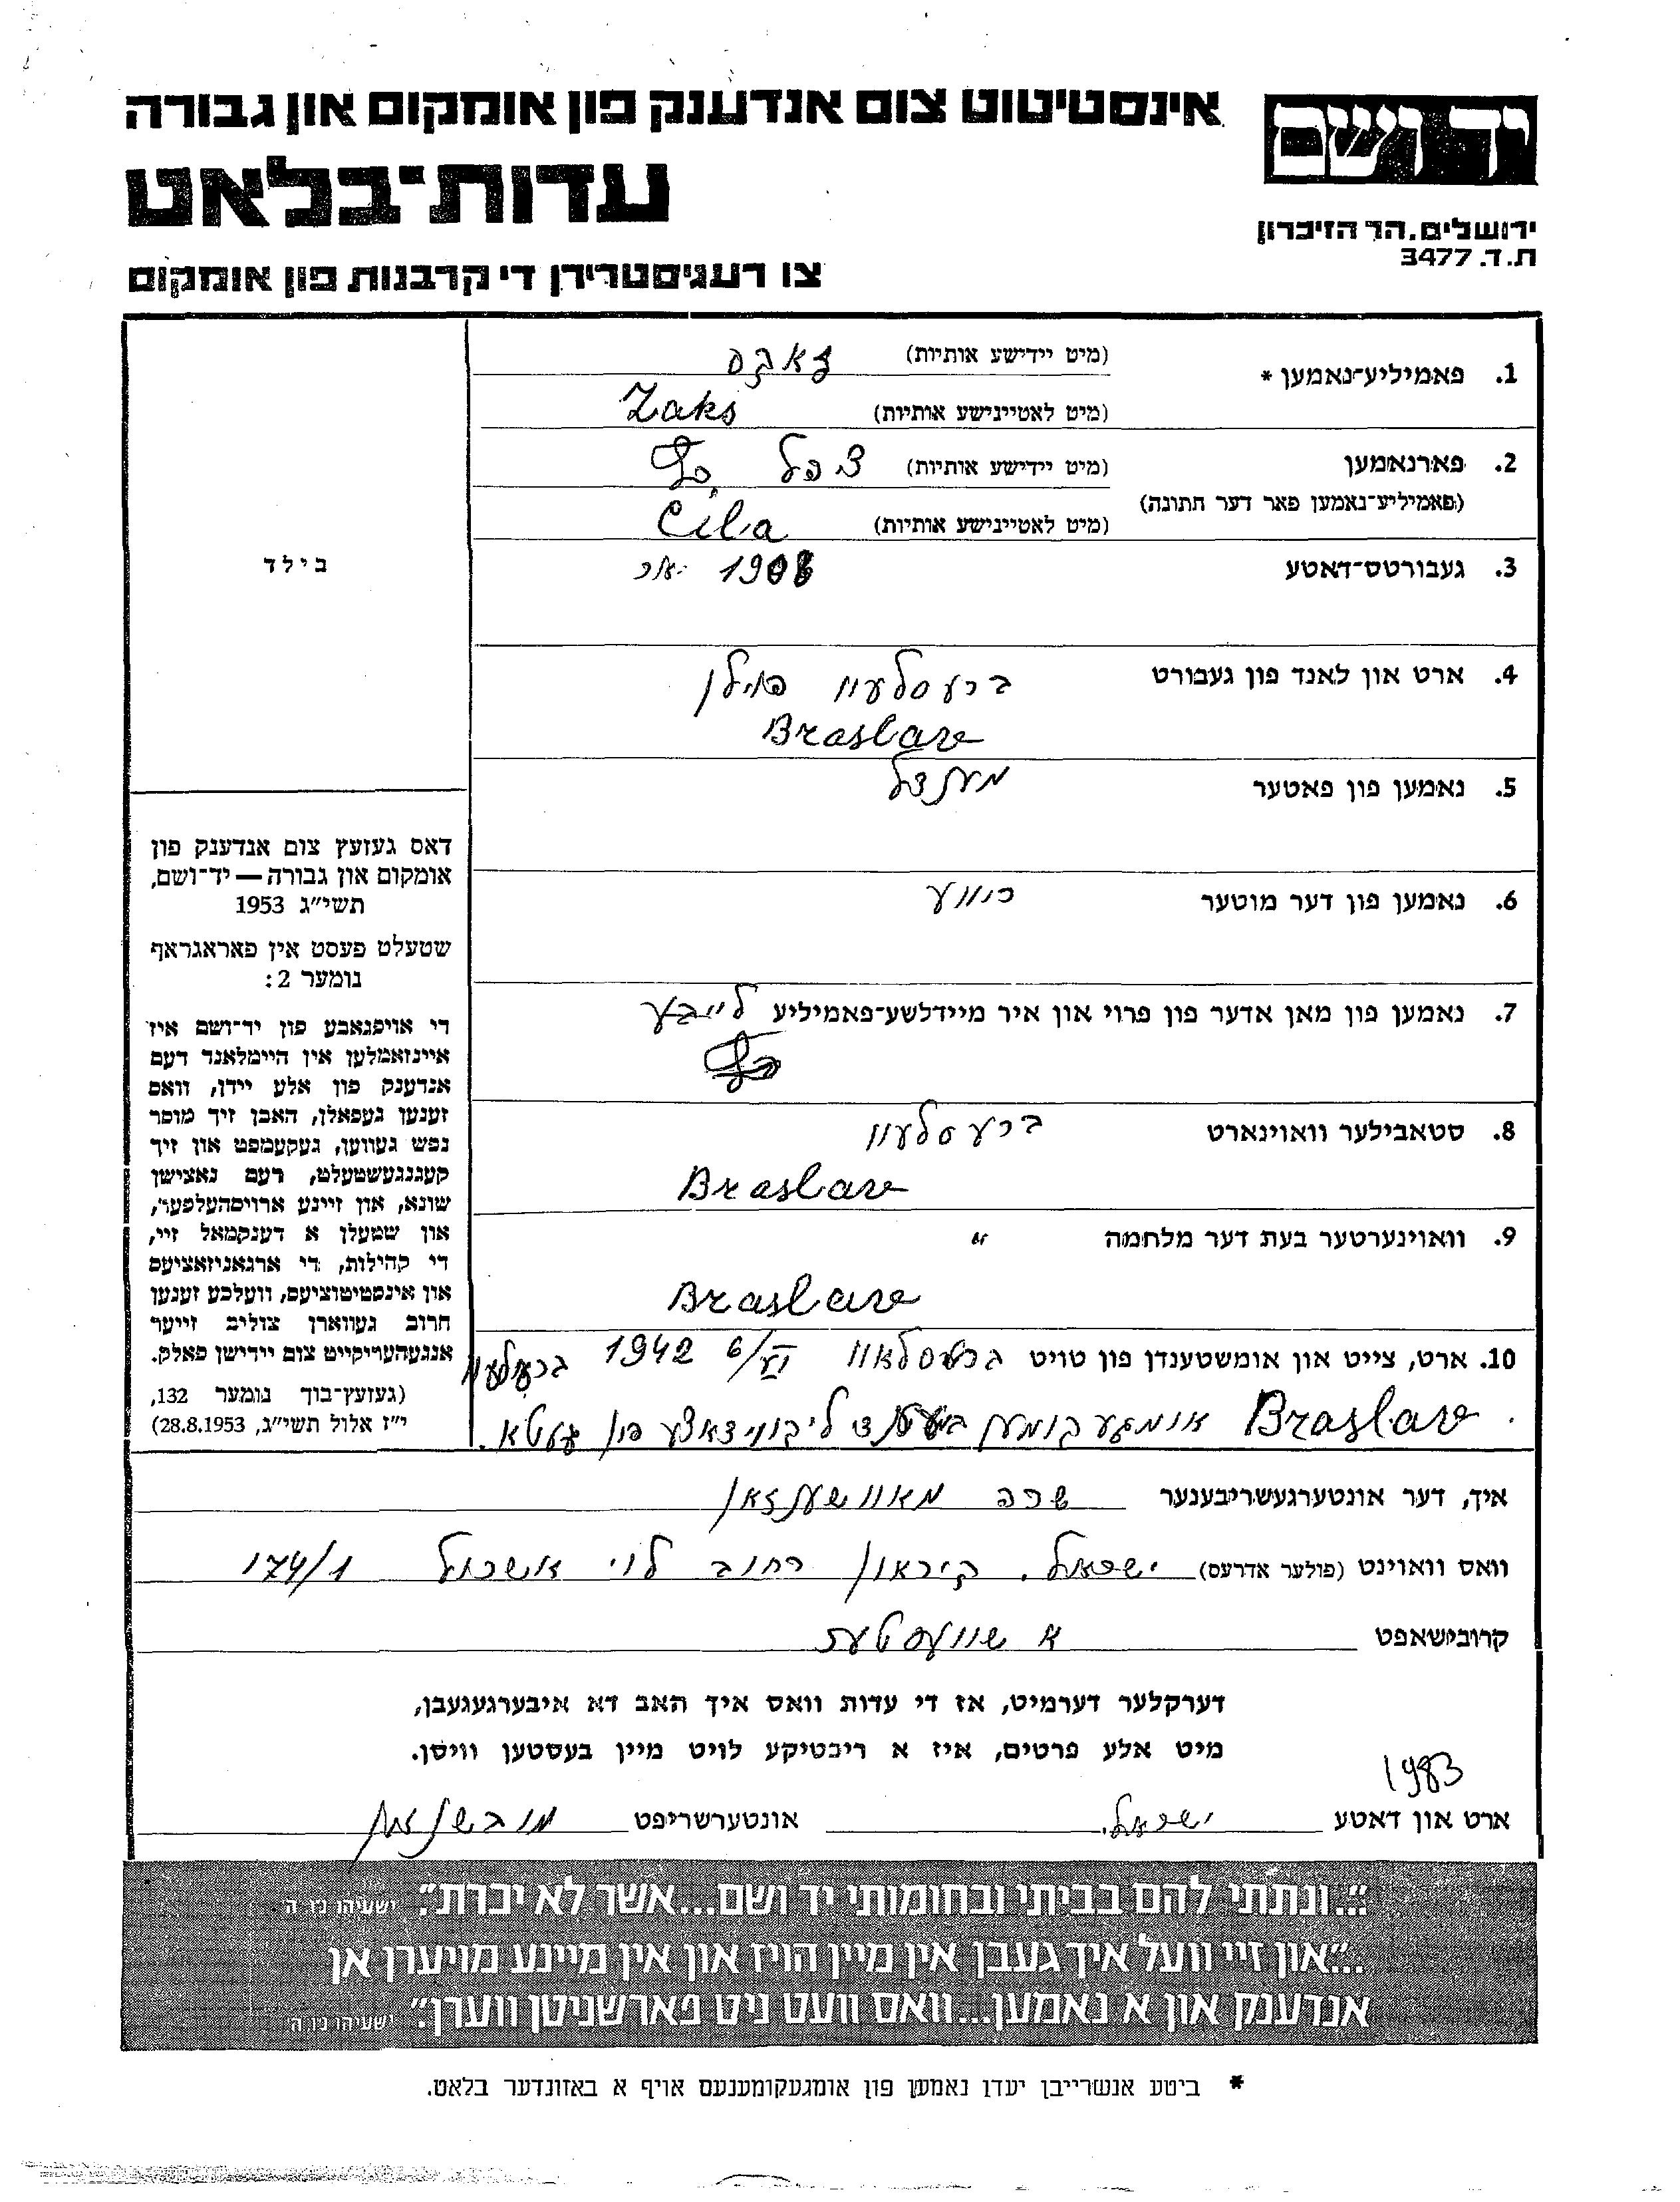 אינסטיטוט צום אנדענק פון אומקום און גבורה
יד ושם
עדות־בלאט
ירושלים, הר הזיכרון
ת.ד. 3477
צו רעגיסטרירן די קרבנות פון אומקום
1. פאמיליע־נאמען * (מיט יידישע אותיות) זאקס
(מיט לאטיינישע אותיות) Zaks
2. פארנאמען (מיט יידישע אותיות)
(פאמיליע־נאמען פאר דער חתונה)
(מיט לאטיינישע אותיות) Cila
3. געבורטס־דאטע 1908 יאר
4. ארט און לאנד פון געבורט ברעסלעוו פוילן
Braslave
5. נאמען פון פאטער מענדל
6. נאמען פון דער מוטער ריווע
7. נאמען פון מאן אדער פון פרוי און איר מיידלשע־פאמיליע לייבע
8. סטאבילער וואוינארט ברעסלעוו
Braslave
9. וואוינערטער בעת דער מלחמה "
Braslave
10. ארט, צייט און אומשטענדן פון טויט ברעסלאוו 6/VI 1942 ברעסלעוו
Braslave אומגעקומען בעת ליקווידאציע פון געטא.
בילד
דאס געזעץ צום אנדענק פון
אומקום און גבורה — יד־ושם,
תשי"ג 1953
שטעלט פעסט אין פאראגראף
נומער 2:
די אויפגאבע פון יד־ושם איז
איינזאמלען אין היימלאנד דעם
אנדענק פון אלע יידן, וואס
זענען געפאלן, האבן זיך מוסר
נפש געווען, געקעמפט און זיך
קעגנגעשטעלט, דעם נאצישן
שונא, און זיינע ארויסהעלפער,
און שטעלן א דענקמאל זיי,
די קהילות, די ארגאניזאציעס
און אינסטיטוציעס, וועלכע זענען
חרוב געווארן צוליב זייער
אנגעהעריקייט צום יידישן פאלק.
(געזעץ־בוך נומער 132,
י"ז אלול תשי"ג, 28.8.1953)
איך, דער אונטערגעשריבענער שרה מאוושענזאן
וואס וואוינט (פולער אדרעס) ישראל. קיראון רחוב לוי אשכול 174/1
קרובישאפט א שוועסטער
דערקלער דערמיט, אז די עדות וואס איך האב דא איבערגעגעבן,
מיט אלע פרטים, איז א ריכטיקע לויט מיין בעסטען וויסן.
1983
ארט און דאטע ישראל. אונטערשריפט
"...ונתתי להם בביתי ובחומותי יד ושם...אשר לא יכרת". ישעיהו נו ה
..."און זיי וועל איך געבן אין מיין הויז און אין מיינע מויערן אן
אנדענק און א נאמען...וואס וועט ניט פארשניטן ווערן". ישעיהו נו ה
* ביטע אנשרייבן יעדן נאמען פון אומגעקומענעם אויף א באזונדער בלאט.